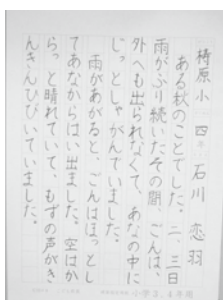 梼原小 四年 石川 恋羽
ある秋のことでした。二、三日
雨がふり続いたその間、ごんは、
外へも出られなくて、あなの中に
しゃがんでいました。
雨があがると、ごんはほっとし
てあなからはい出ました。空はか
らっと晴れていて、もずの声がき
んきんひびいていました。
小学3.4年用